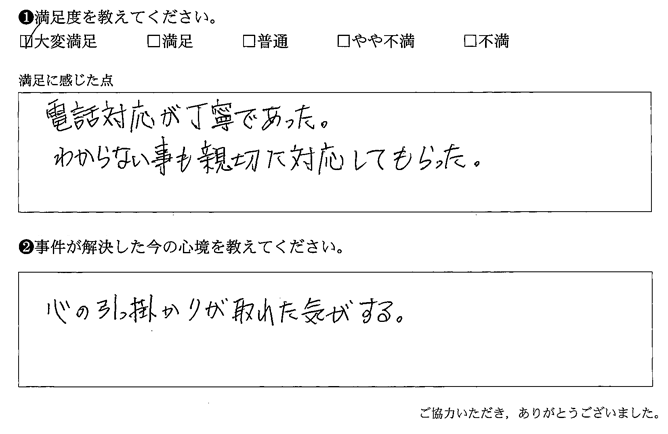 ❶満足度を教えてください。
☑大変満足 □満足 □普通 □やや不満 □不満
満足に感じた点
電話対応が丁寧であった。
わからない事も親切に対応してもらった。
❷事件が解決した今の心境を教えてください。
心の引っ掛かりが取れた気がする。
ご協力いただき，ありがとうございました。